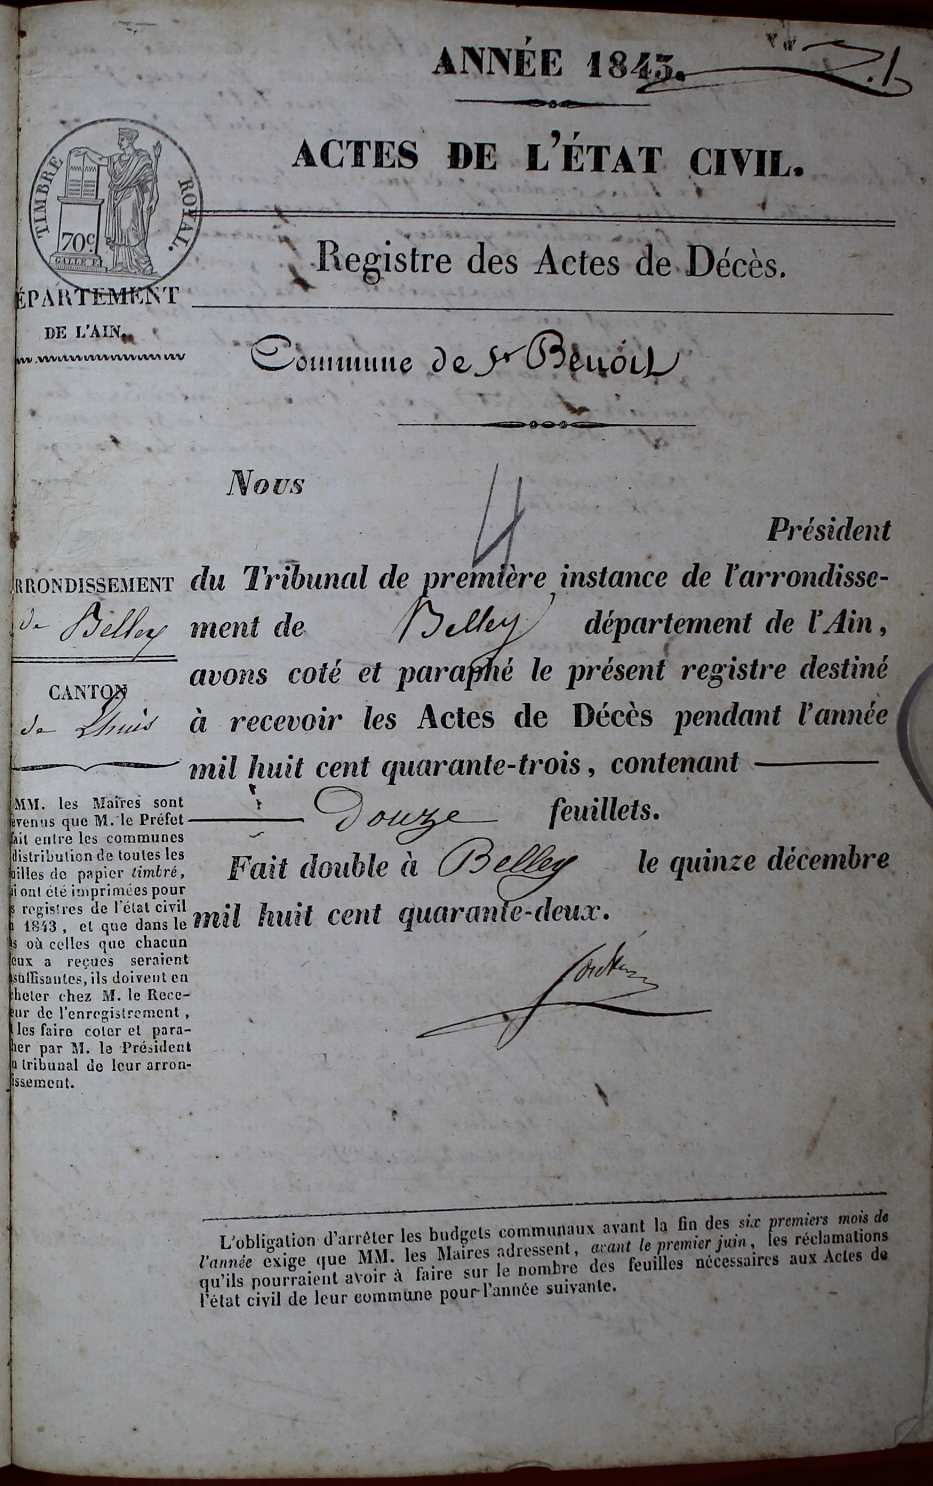 ANNÉE 1843.
ACTES DE L'ÉTAT CIVIL.
TIMBRE ROYAL.
70c
GALLE F.
Registre des Actes de Décès.
ÉPARTEMENT
DE L'AIN.
Commune de St Benoît
Nous
4
Président
RRONDISSEMENT
de Belley
CANTON
de Lhuis
du Tribunal de première instance de l'arrondisse-
ment de Belley département de l'Ain,
avons coté et paraphé le présent registre destiné
à recevoir les Actes de Décès pendant l'année
mil huit cent quarante-trois, contenant
Douze feuillets.
Fait double à Belley le quinze décembre
mil huit cent quarante-deux.
MM. les Maires sont
evenus que M. le Préfet
ait entre les communes
distribution de toutes les
uilles de papier timbré,
i ont été imprimées pour
s registres de l'état civil
1843, et que dans le
s où celles que chacun
eux a reçues seraient
suffisantes, ils doivent en
heter chez M. le Rece-
ur de l'enregistrement,
les faire coter et para-
her par M. le Président
u tribunal de leur arron-
issement.
L'obligation d'arrêter les budgets communaux avant la fin des six premiers mois de
l'année exige que MM. les Maires adressent, avant le premier juin, les réclamations
qu'ils pourraient avoir à faire sur le nombre des feuilles nécessaires aux Actes de
l'état civil de leur commune pour l'année suivante.